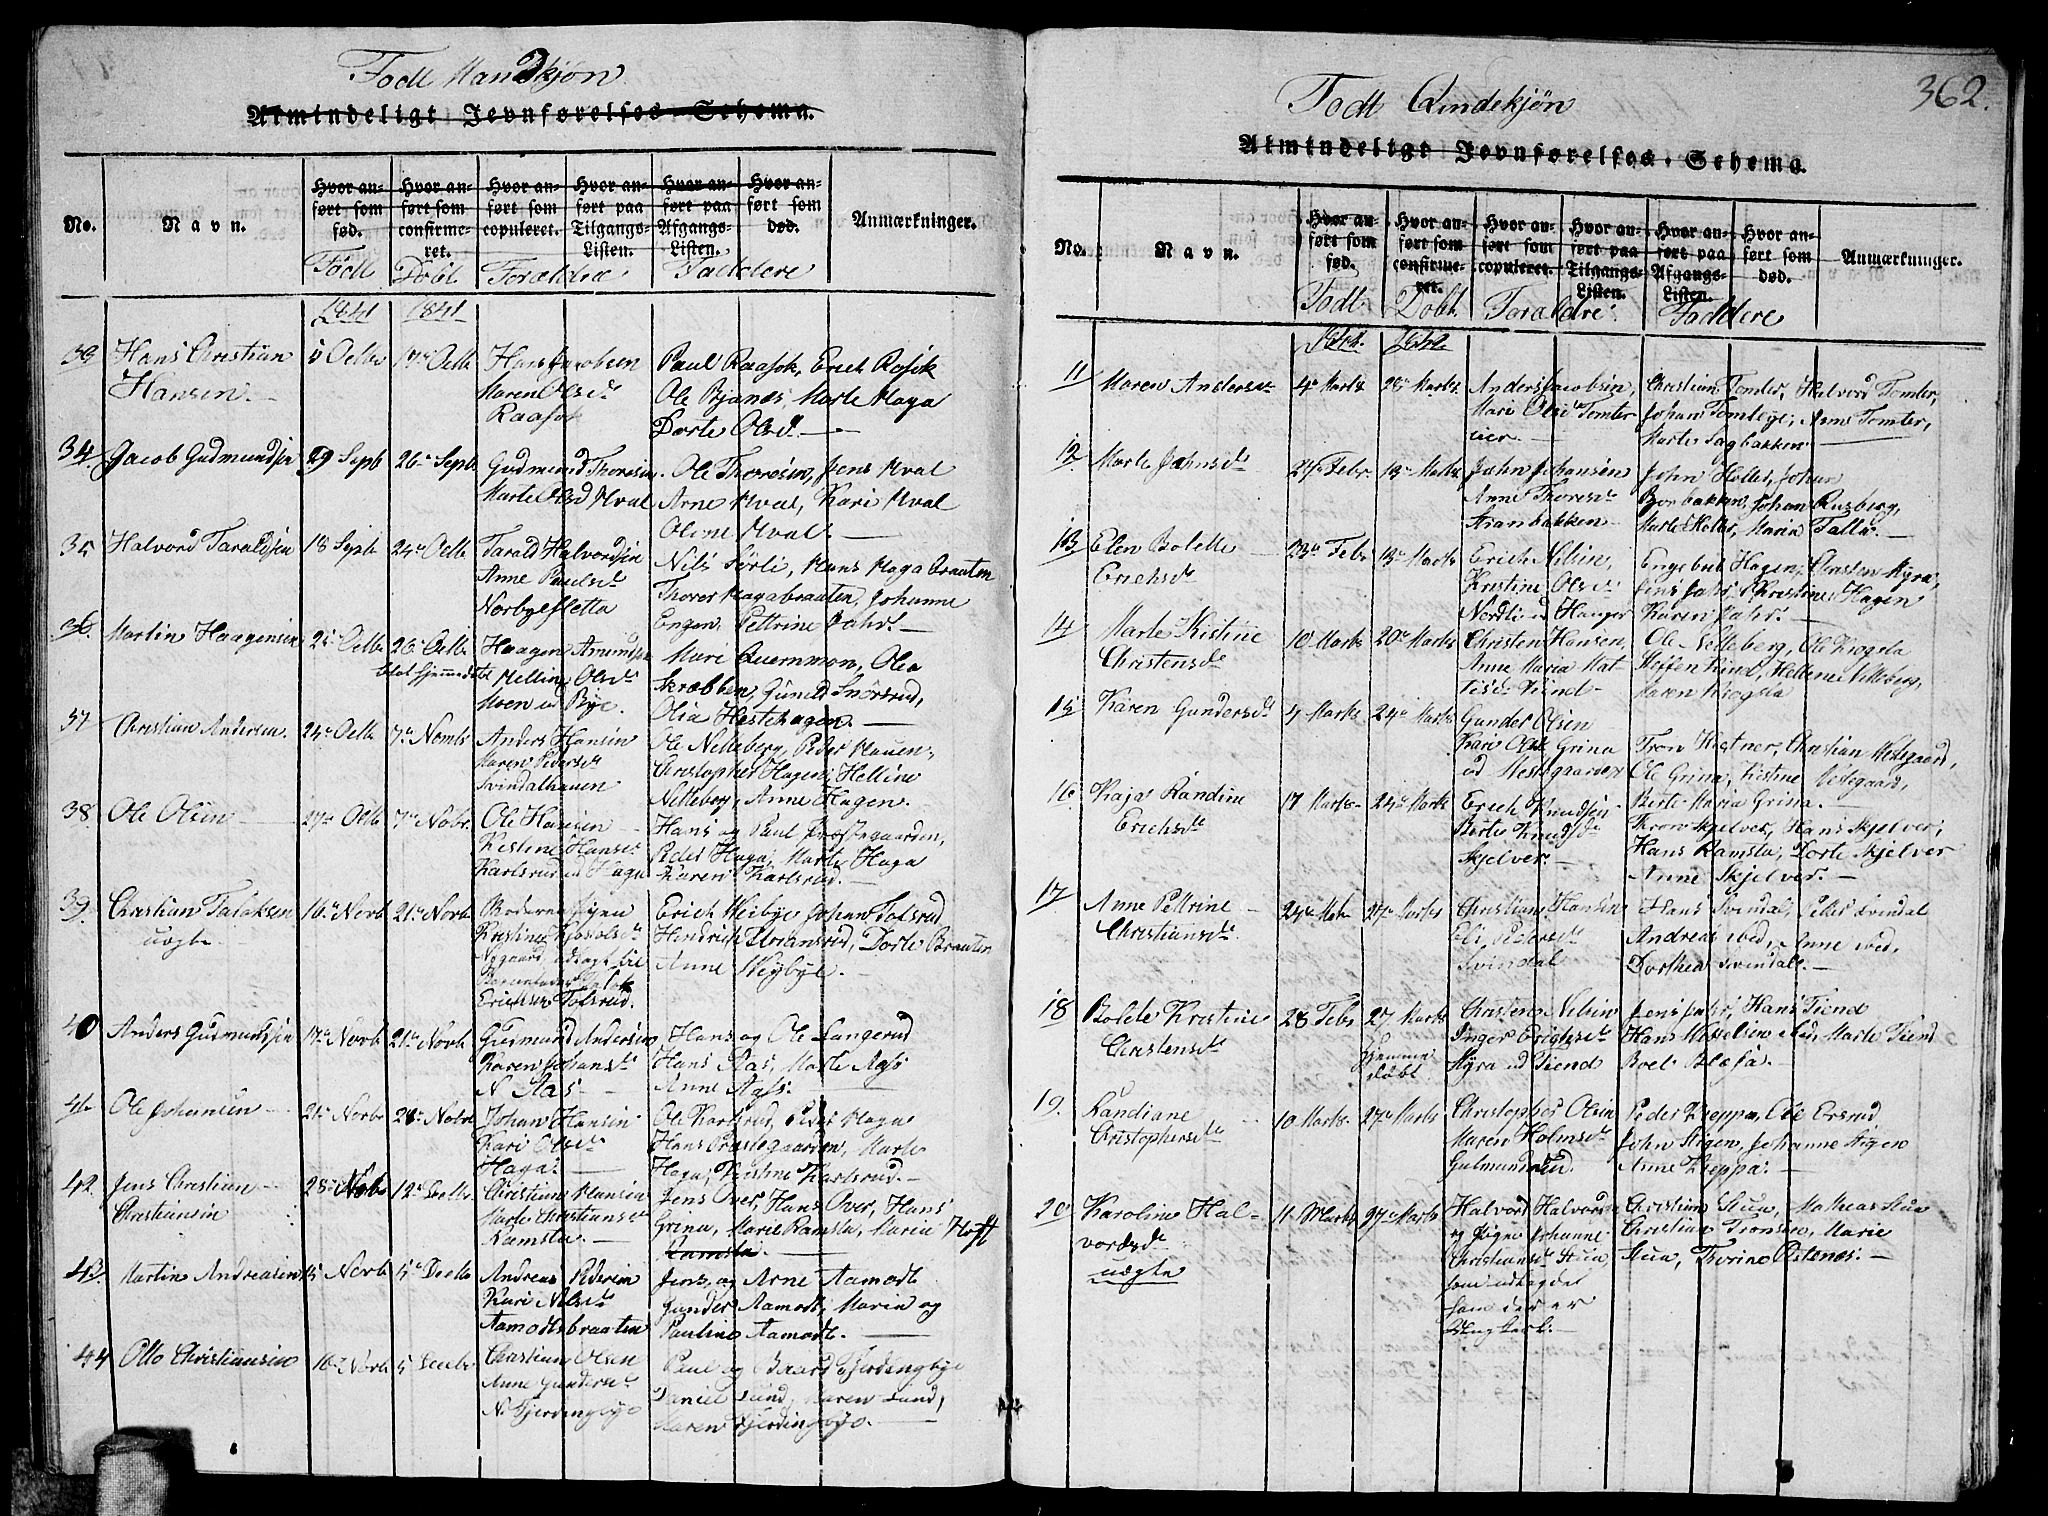 Født Mandkjøn
Almindeligt Jevnførelses-Schema.
No.
Navn.
Hvor anført som fød.
Hvor anført som confirmeret.
Hvor anført som copuleret.
Hvor anført paa Tilgangs-Listen.
Hvor anført paa Afgangs-Listen.
Hvor anført som død.
Anmærkninger.
Født Døbt Forældre Faddere
1841 1841
33 Hans Christian Hansen 17de Octb Hans Jacobsen
Maren Olsd
Raasok
Paul Raasok, Erich Rasok
Ole Bjanes, Marte Haga
Dorte Olsd.
34 Jacob Gudmundsen 29 Septb 26de Septb Gudmund Thoresen
Marte Olsd Hval
Ole Thoresen, Jens Hval
Arne Hval, Kari Hval
Oline Hval.
35 Halvord Taraldsen 18 Septb 24de Octb Tarald Halvordsen
Anne Paulsd
Norbyesletta
Nils Sørli, Hans Haga Braaten
Thorer Hagabraaten, Johanne
Engen, Pettrine Dahl.
36. Martin Haagensen 26de Octb Haagen Amundsen
Helline Olsd
Moen ud Bye.
Mari Quernmon, Olea
Skræbben, Gunild Snorsrud,
Olia Hestehagen.
37 Christian Andersen. 24de Octb 7de Novmb Anders Hansen
Maren Pedersd
Svindalhauen
Ole Nelleberg, Peder Hauen,
Christopher Hagen, Helline
Nelleberg, Anne Hagen.
38. Ole Olsen 27de Octb 7de Novbr Ole Hansen
Kristine Hansd
Karlsrud ud Haga
Hans og Paul Præstegaarden,
Peder Haga, Marte Haga
Karen Karlsrud.
39. Christian Taraldsen
uægte
16de Novb 21de Novb
Kristine
Nygaard, udlagt til
Ericksen Tolsrud.
Erich Heibye, Johan Tolsrud
Hendrich Uransrud, Dorte Braaten
Anne Heybye.
40 Anders Gudmundsen 17de Novb 21de Novb Gudmund Andersen
Karen Johansd
N Aas
Hans og Ole Langerud
Hans Aas, Marte Aas
Anne Aas.
41. Ole Johansen 21de Novbr 28de Novbr Johan Hansen
Kari Olsd
Haga
Ole Karlsrud, Peder Haga
Hans Præstegaarden, Marte
Haga, Kristine Karlsrud.
42. Jens Christian
Christiansen
28de Novb 12de Decbr Christian Hansen
Marte Christiansd
Ramsta.
Jens Over, Hans Over, Hans
Grina, Marie Ramsta, Marie Hoft
Ramsta.
43. Martin Andreasen 15 Novb 5de Decbr Andreas Pedersen
Kari Nilsd
Aamodtsbraaten
Jens og Arne Aamodt
Gunder Aamodt, Maria og
Pauline Aamodt.
44 Otto Christiansen 16de Novb 5 Decbr Christian Olsen
Anne Gundersd
N. Fjerdingbye
Paul og Baard Fjerdingbye
Daniel Lund, Karen Lund,
Maren Fjerdingbye.
362.
Født Qvindekjøn
Almindeligt Jevnførelses-Schema.
No.
Navn.
Hvor anført som fød.
Hvor anført som confirmeret.
Hvor anført som copuleret.
Hvor anført paa Tilgangs-Listen.
Hvor anført paa Afgangs-Listen.
Hvor anført som død.
Anmærkninger.
Født Døbt Forældre Faddere
11 Maren Andersd 4de Marts 28de Marts Anders Jacobsen,
Mari Olsd Tomter
eier.
Christian Tomter, Halvord Tomter,
Johan Tomteye, Anne Tomter,
Marte Sagbakken
12 Marte Johnsd 27de Febr. 13de Marts John Johansen
Anne Thoresd
Aranbakken
John Holter, Johan
Bonbakken, Johan Rusberg,
Marte Holter, Maria Falla.
13 Elen Bolette
Erichsd
23de Febr 13de Marts Erich Nilsen,
Kristine Olsd
Nordli ud Hauger
Engebret Hagen, Christen Myra,
Jens Jahr, Christine Hagen
Karen Jahr.
14 Marte Kistine
Christensd
10 Marts 20de Marts Christen Hansen,
Anne Maria Mattisd Tiend
Ole Nelleberg, Ole Krogsla
Steffen Tiend, Hellene Nelleberg,
Maren Krogsla
15 Karen Gundersd 4 Marts 24de Marts Gunder Olsen
Kari Olsd Grina
ud Mestegaarden
Tron Hestner, Christian Melegaard,
Ole Grina, Kistine Melegaard,
Berte Maria Grina.
16 Kaja Randine
Erichsd
17 Marts 24de Marts Erich Knudsen
Berte Knudsd
Skjelver.
Thron Skjelver, Hans Skjelver,
Hans Ramsta, Dorte Skjelver
Anne Skjelver.
17 Anne Pettrine
Christiansd
27de Marts Christian Hansen
Eli Pedersd
Svindal
Hans Svendal, Peder Svindal
Andreas ibid, Anne ibid,
Dorthea Svendal.
18 Bolete Kristine
Christensd
28 Febr 27 Marts
Hjemmedøbt
Christen Nilsen
Inger Erichsd
Myra ud Tiend
Jens Jahr, Hans Tiend
Hans Nilsen ibid, Marte Tiend
Boel Blæsa.
19. Randiane
Christophersd
10 Marts 27de Marts Christopher Olsen
Maren Holmsd
Gulmundrud.
Peder Kreppa, Ole Ersrud
John Stigen, Johanne Stigen
Anne Kreppa.
20 Karoline Halvordsd
uægte
11 Marts 27de Marts Halvord Halvords
og Pigen Johanne
Christiansd Stua
som udlægges
som der er
Christian Stua, Mathias Stua
Christian Tronsen, Marie
Stua, Thorine Restenæs.